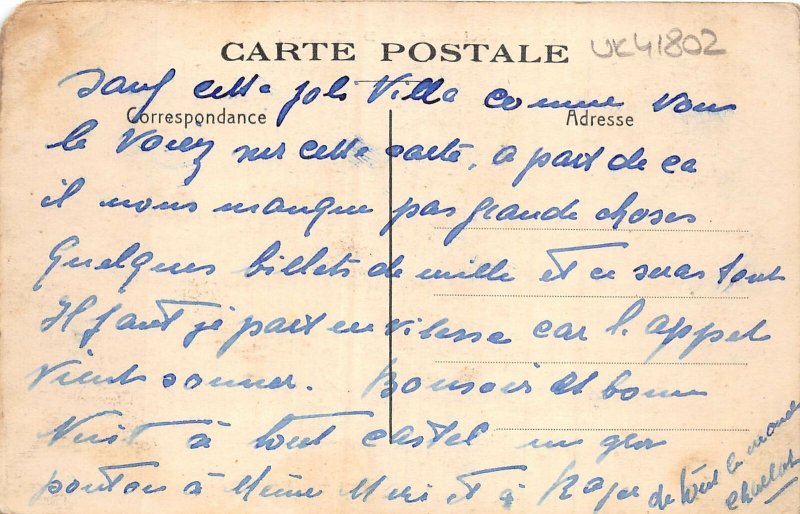 CARTE POSTALE
UK41802
Correspondance
Adresse
sauf cette joli Villa comme vous
le voiez sur cette carte, a part de ca
il nous manque pas grande choses
Quelques billets de mille et ce seras tout
Il faut je part en vitesse car l'appel
vient sonner. Bonsoir et bonne
Nuit à tout castel un gros
à Meme et à Roger
de tout le monde